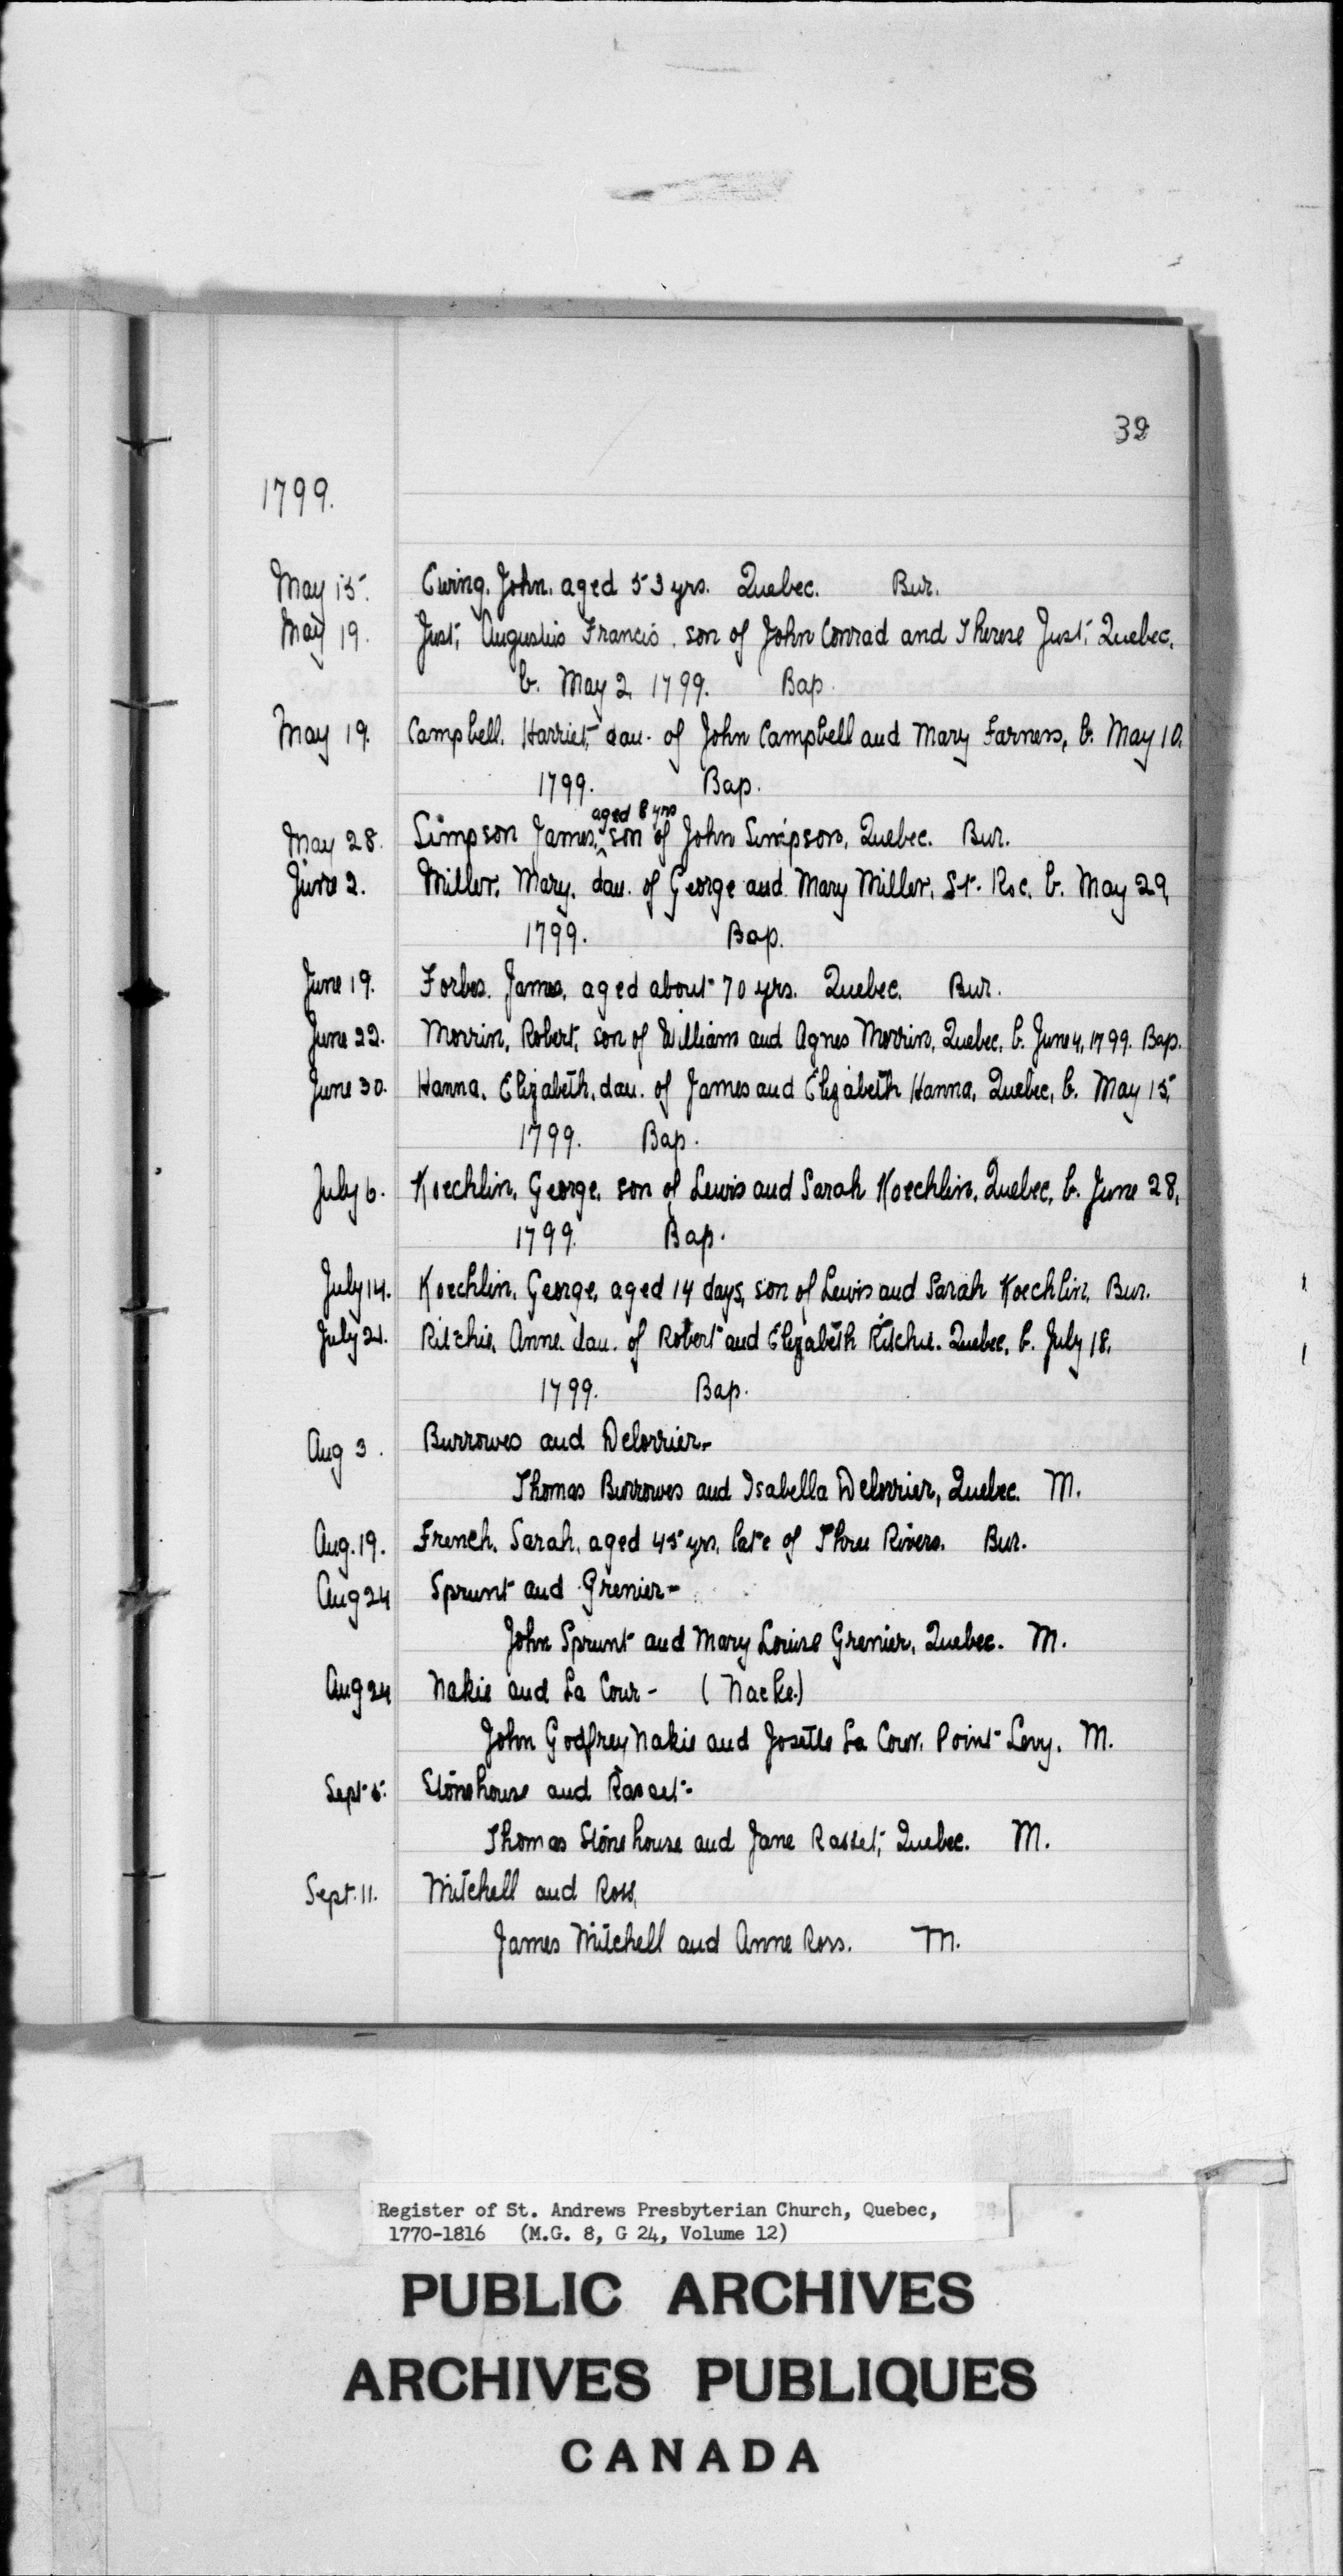 39
1799.
May 15. Ewing, John, aged 53 yrs. Quebec. Bur.
May 19. Just, Augustus Francis, son of John Conrad and Therese Just, Quebec,
b. May 2, 1799. Bap.
May 19. Campbell, Harriet, dau. of John Campbell and Mary Farness, b. May 10,
1799. Bap.
May 28. Simpson James, aged 8 yrs son of John Simpson, Quebec. Bur.
June 2. Miller, Mary, dau. of George and Mary Miller, St. Roc, b. May 29,
1799. Bap.
June 19. Forbes, James, aged about 70 yrs. Quebec. Bur.
June 22. Morrin, Robert, son of William and Agnes Morrin, Quebec, b. June 4, 1799. Bap.
June 30. Hanna, Elizabeth, dau. of James and Elizabeth Hanna, Quebec, b. May 15,
1799. Bap.
July 6. Koechlin, George, son of Lewis and Sarah Koechlin, Quebec, b. June 28,
1799. Bap.
July 14. Koechlin, George, aged 14 days, son of Lewis and Sarah Koechlin, Bur.
July 21. Ritchie, Anne, dau. of Robert and Elizabeth Ritchie. Quebec, b. July 18,
1799. Bap.
Aug 3. Burrowes and Delorrier-
Thomas Burrowes and Isabella Delorrier, Quebec. M.
Aug. 19. French, Sarah, aged 45 yrs, late of Three Rivers. Bur.
Aug 24 Sprunt and Grenier-
John Sprunt and Mary Louise Grenier, Quebec. M.
Aug 24 Nakie and La Cour - (Nacke.)
John Godfrey Nakie and Josette La Cour, Point Levy. M.
Sept 5. Stonehouse and Rasset-
Thomas Stonehouse and Jane Rasset, Quebec. M.
Sept. 11. Mitchell and Ross,
James Mitchell and Anne Ross. M.
Register of St. Andrews Presbyterian Church, Quebec,
1770-1816 (M.G. 8, G 24, Volume 12)
PUBLIC ARCHIVES
ARCHIVES PUBLIQUES
CANADA